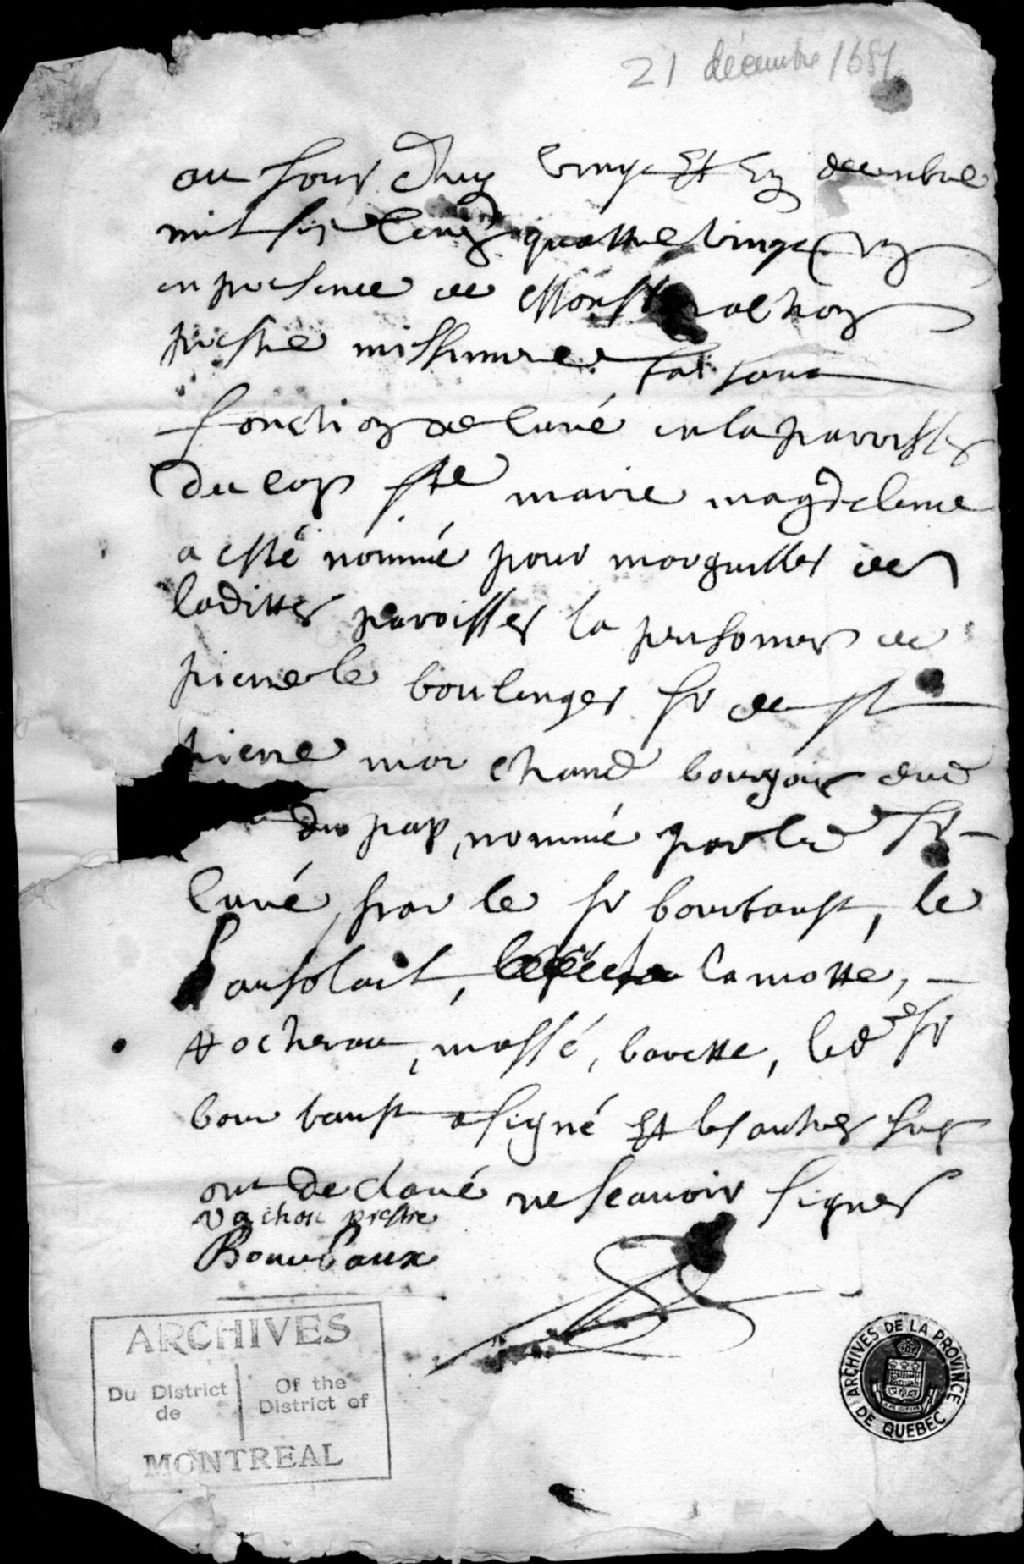 21 décembre 1681
au Jour d'huy vingt Et un decembre
mil six Cens quattre vingt un
en presence de Monsr vachon
prestre missionnre faisant
fonction de Curé en la parroisse
Du Cap ste marie magdeleine
a esté nommé pour marguillier de
laditte paroisse la personne de
pierre le boulenger sr de st
pierre marchand bourgois
du Cap, nommé par le sr
Curé, par le sr bourbaux, le
lamotte,
Rocherau, massé, barette, led sr
bourbaux a signé Et les autres
ont declaré ne scavoir signer
vachon prestre
Bourbaux
ARCHIVES
Du District de
Of the District of
MONTREAL
ARCHIVES DE LA PROVINCE DE QUEBEC